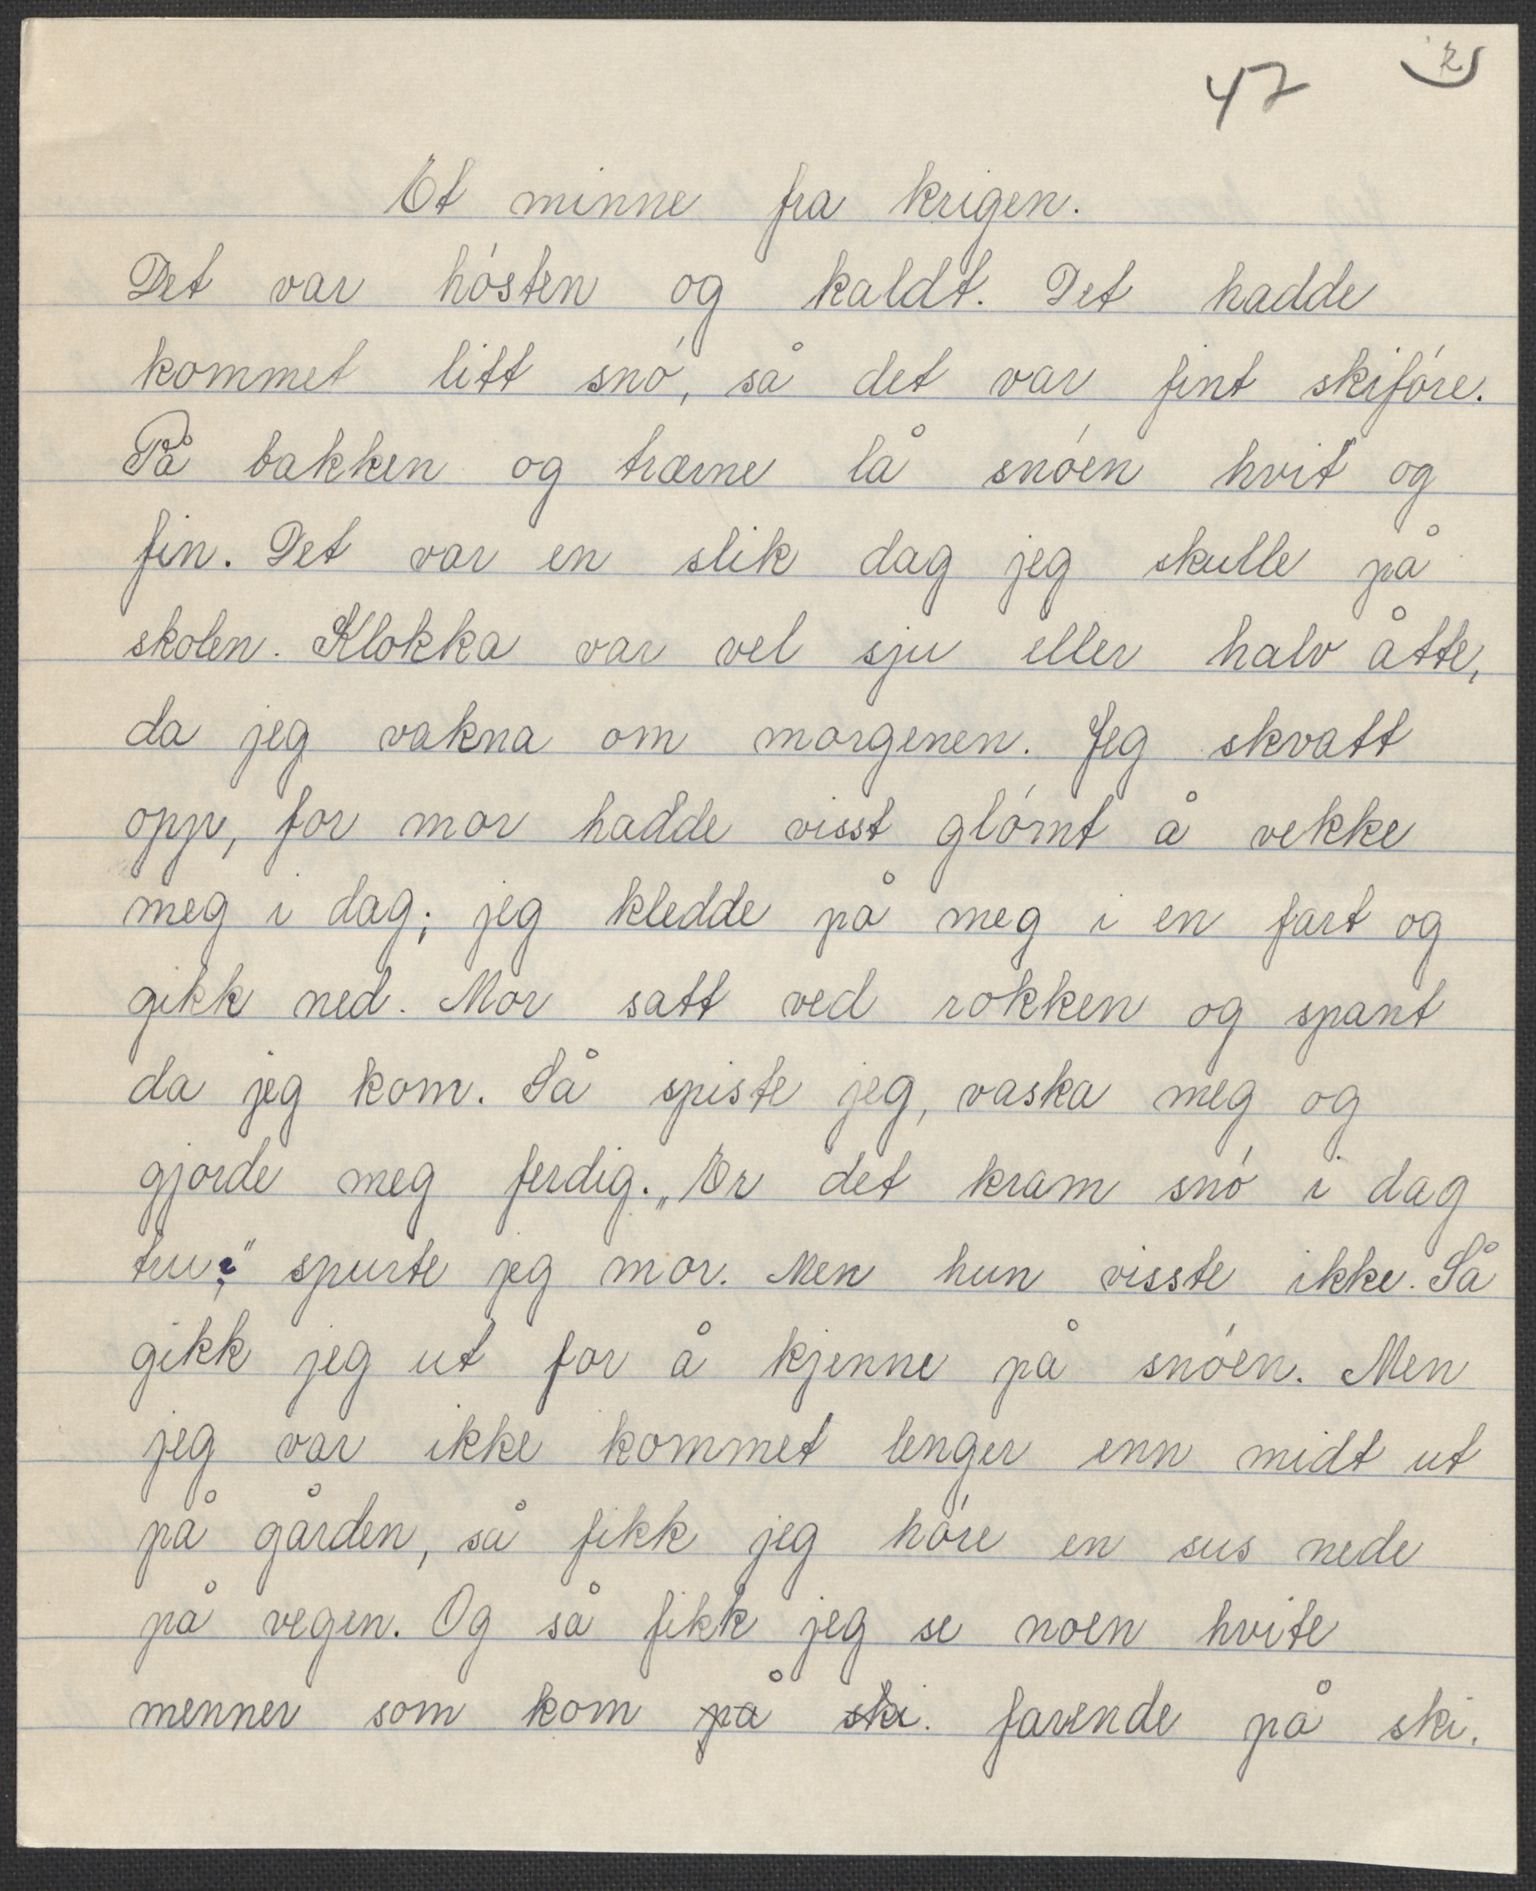 47
Et minne fra krigen.
Det var hósten og kaldt. Det hadde
kommet litt snó, så det var fint skifóre.
På bakken og trærne lå snóen hvit og
fin. Det var en slik dag jeg skulle på
skolen. Klokka var vel sju eller halv åtte,
da jeg vakna om morgenen. Jeg skvatt
opp, for mor hadde visst glómt å vekke
meg i dag; jeg kledde på meg i en fart og
gikk ned. Mor satt ved rokken og spant
da jeg kom. Så spiste jeg, vaska meg og
gjorde meg ferdig. „Er det kram snó i dag
tru?" spurte jeg mor. Men hun visste ikke. Så
gikk jeg ut for å kjenne på snóen. Men
jeg var ikke kommet lenger enn midt ut
på gården, så fikk jeg hóre en sus nede
på vegen. Og så fikk jeg se noen hvite
menner som kom på ski. farende på ski.